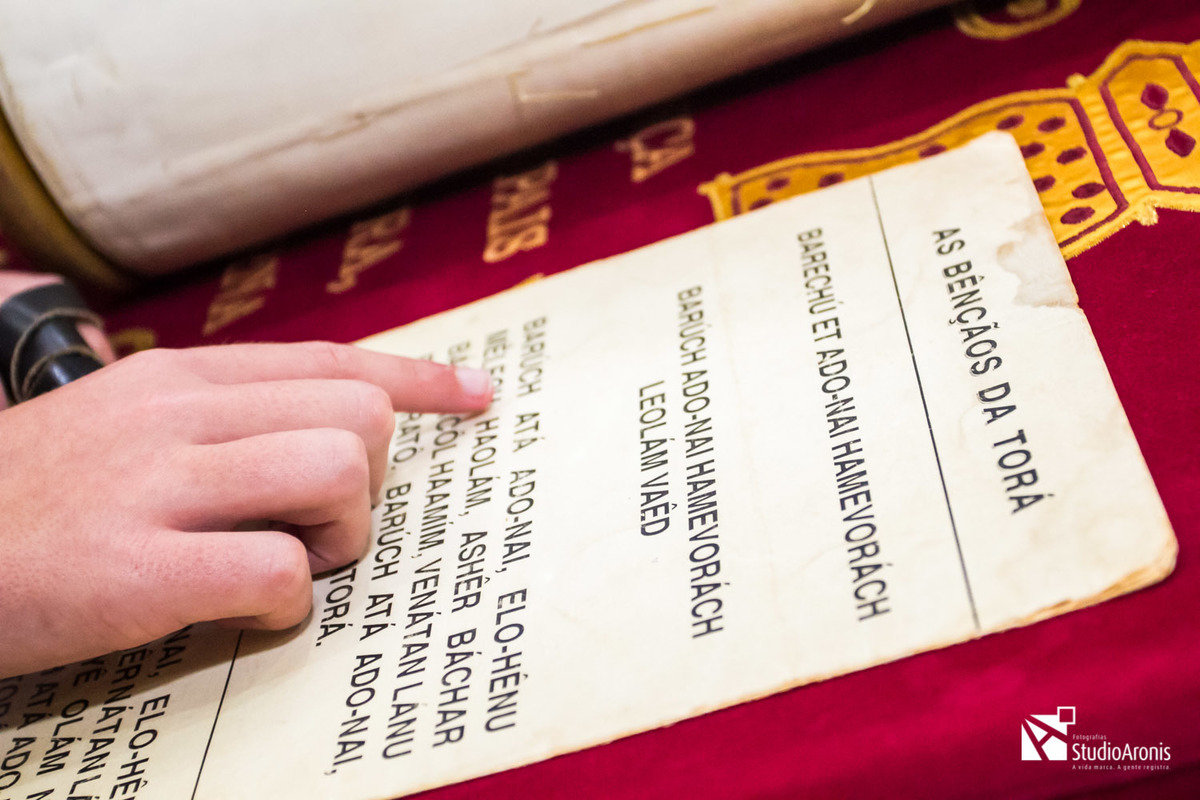 AS BÊNÇÃOS DA TORÁ
BARECHÚ ET ADO-NAI HAMEVORÁCH
BARÚCH ADO-NAI HAMEVORÁCH
LEOLÁM VAÊD
BARÚCH ATÁ ADO-NAI, ELO-HÊNU
HAOLÁM, ASHÊR BÁCHAR
CÓL HAAMÍM, VENÁTAN LÁNU
BARÚCH ATÁ ADO-NAI,
TORÁ.
ELO-HÊN
NÁTAN L
OLÁM
ATÁ ADO
PAIS
Fotografias
StudioAronis
A vida marca. A gente registra.